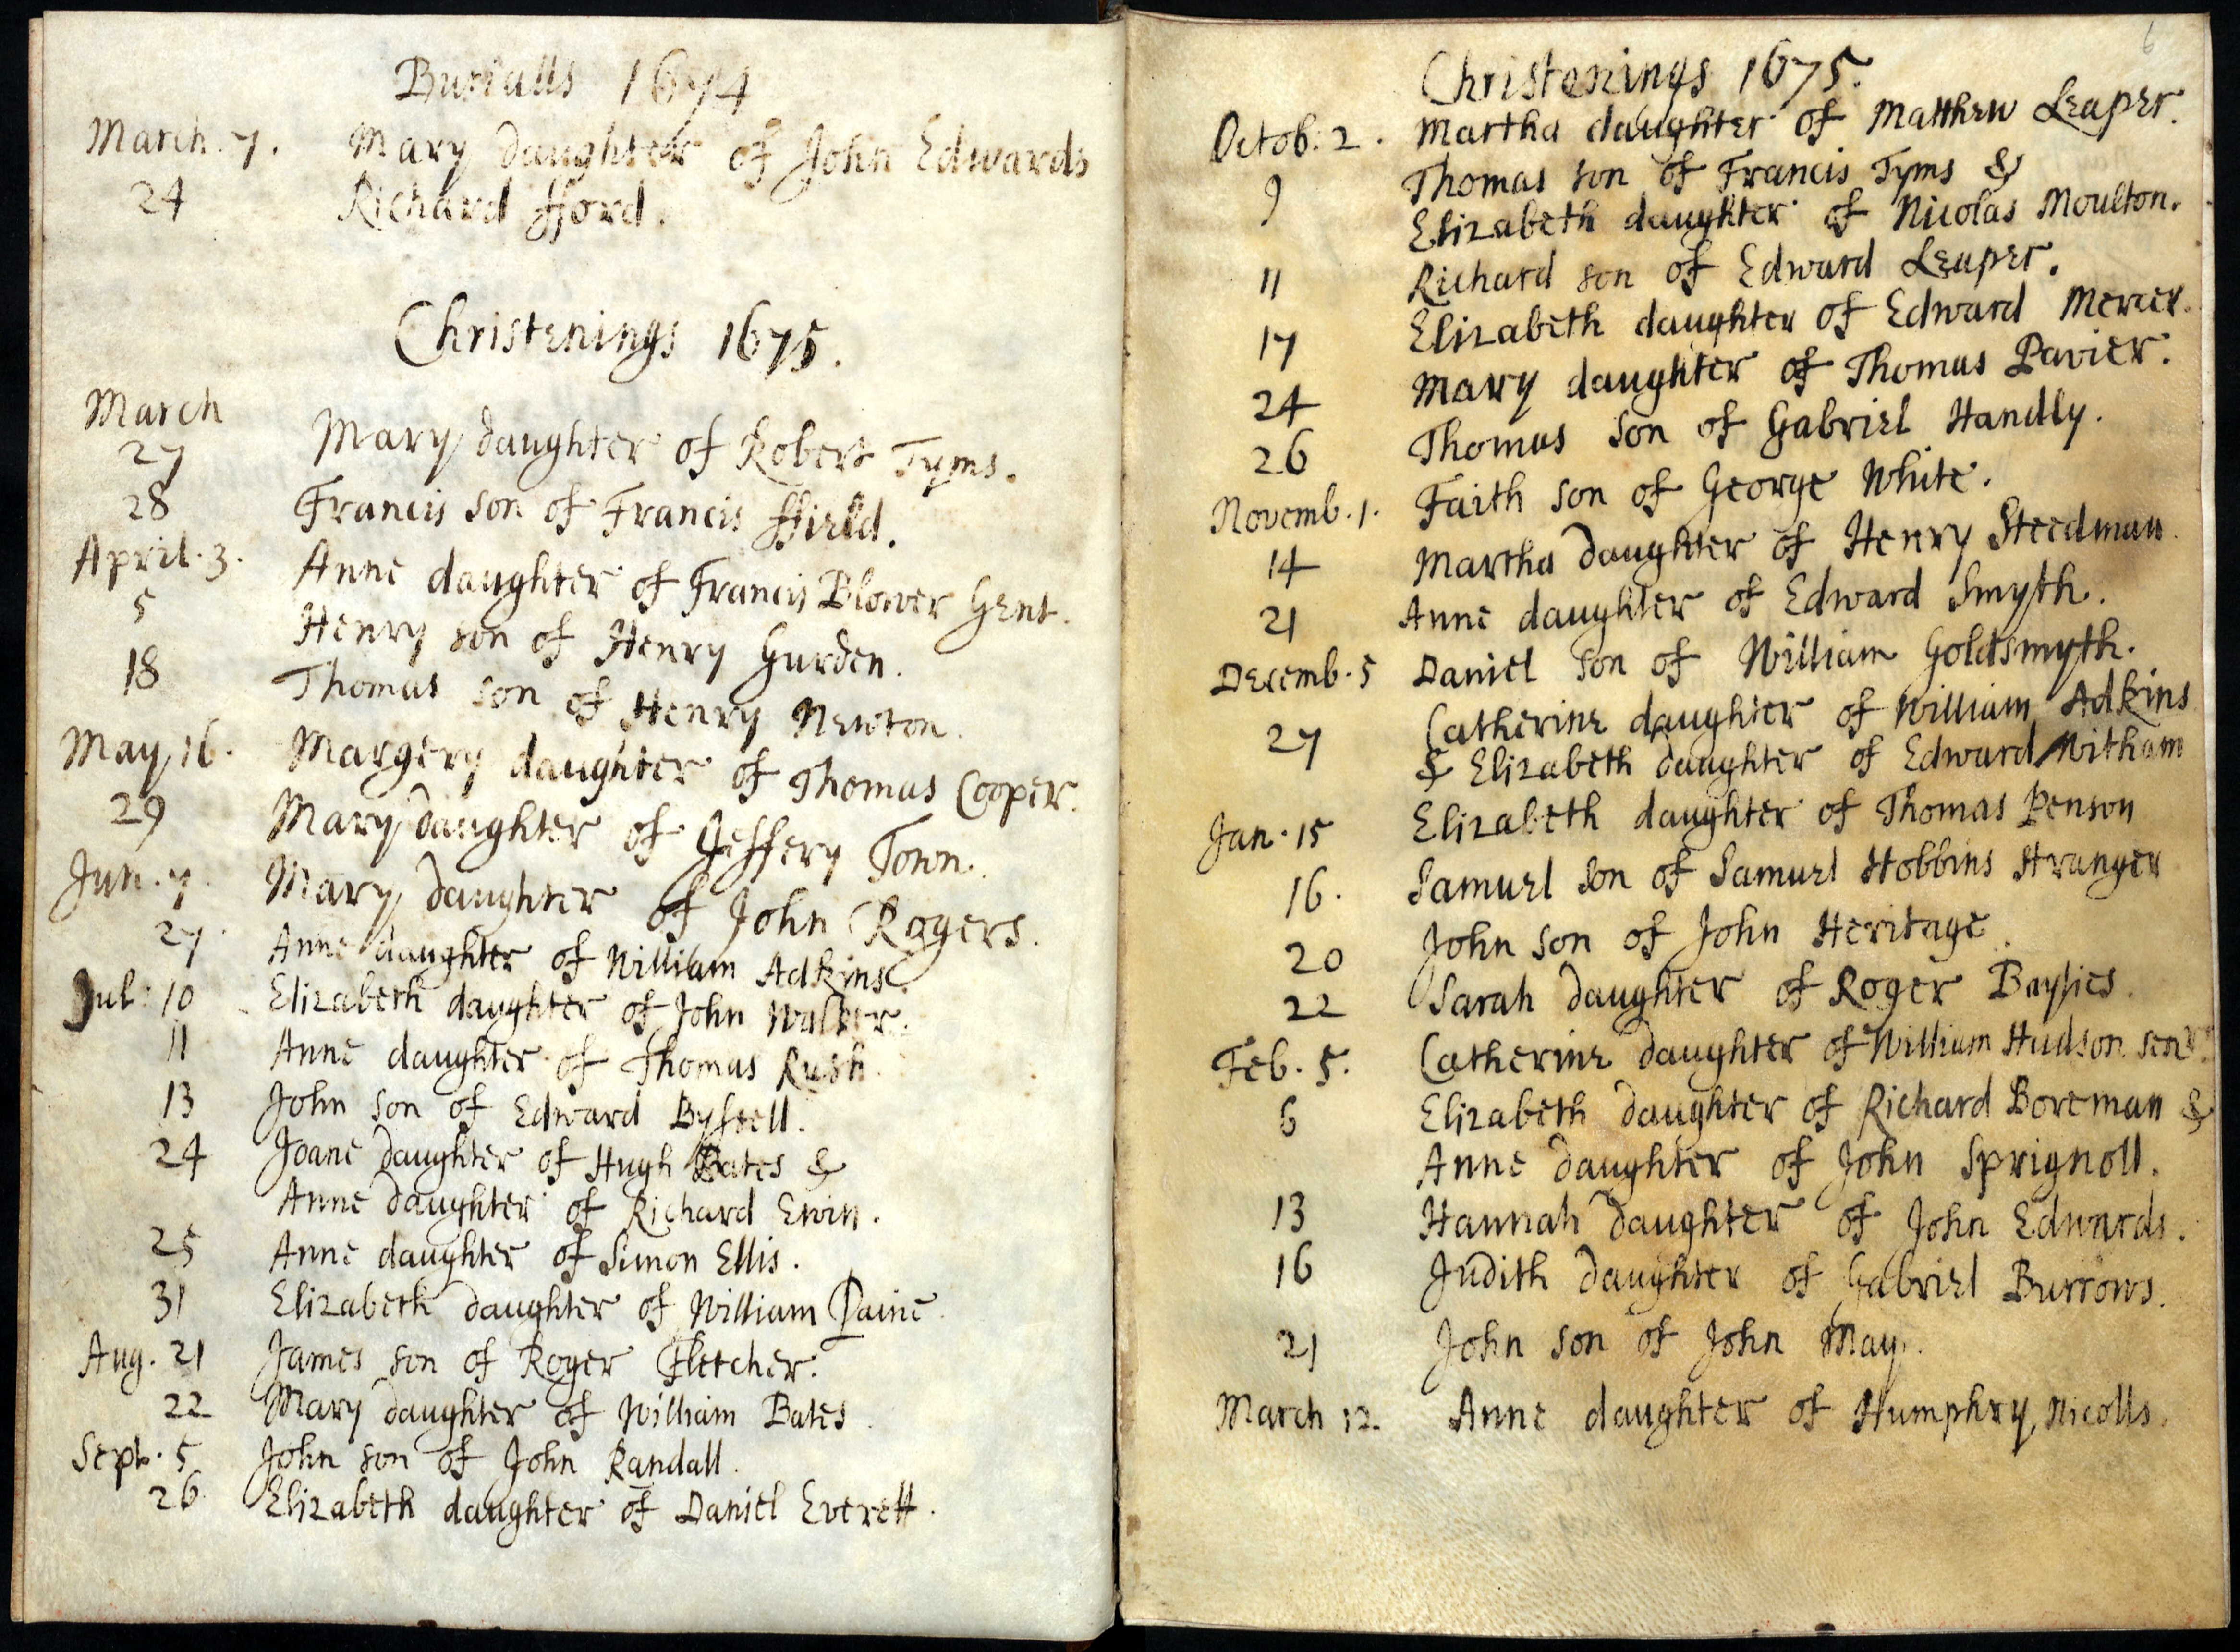 Burialls 1674
March. 7. Mary daughter of John Edwards
24 Richard fford.
Christenings 1675.
March
27 Mary daughter of Robert Tyms.
28 Francis son of Francis ffield.
April. 3. Anne daughter of Francis Blower Gent.
5 Henry son of Henry Gurden.
18 Thomas son of Henry Newton.
May 16. Margery daughter of Thomas Cooper.
29 Mary daughter of Jeffery Town.
Jun. 7. Mary daughter of John Rogers.
27. Anne daughter of William Adkins.
Jul: 10 Elizabeth daughter of John Walker.
11 Anne daughter of Thomas Rush.
13 John son of Edward Byssell.
24 Joane daughter of Hugh Bates &
Anne daughter of Richard Ewin.
25 Anne daughter of Simon Ellis.
31 Elizabeth daughter of William Paine
Aug. 21 James son of Roger Fletcher.
22 Mary daughter of William Bates.
Sept. 5 John son of John Randall.
26 Elizabeth daughter of Daniel Everett.
6
Christenings 1675.
Octob: 2. Martha daughter of Matthew Leaper.
9 Thomas son of Francis Tyms &
Elizabeth daughter of Nicolas Moulton.
11 Richard son of Edward Leaper.
17 Elizabeth daughter of Edward Mercer.
24 Mary daughter of Thomas Pavier.
26 Thomas son of Gabriel Handly.
Novemb. 1. Faith son of George White.
14 Martha daughter of Henry Steedman.
21 Anne daughter of Edward Smyth.
Decemb. 5 Daniel son of William Goldsmyth.
27 Catherine daughter of William Adkins
& Elizabeth daughter of Edward Witham
Jan. 15 Elizabeth daughter of Thomas Penson
16. Samuel son of Samuel Hobbins stranger
20 John son of John Heritage.
22 Sarah daughter of Roger Baylies.
Feb. 5. Catherine daughter of William Hudson senr.
6 Elizabeth daughter of Richard Boreman &
Anne daughter of John Sprignoll.
13 Hannah daughter of John Edwards.
16 Judith daughter of Gabriel Burrows.
21 John son of John May.
March 12. Anne daughter of Humphry Nicolls.